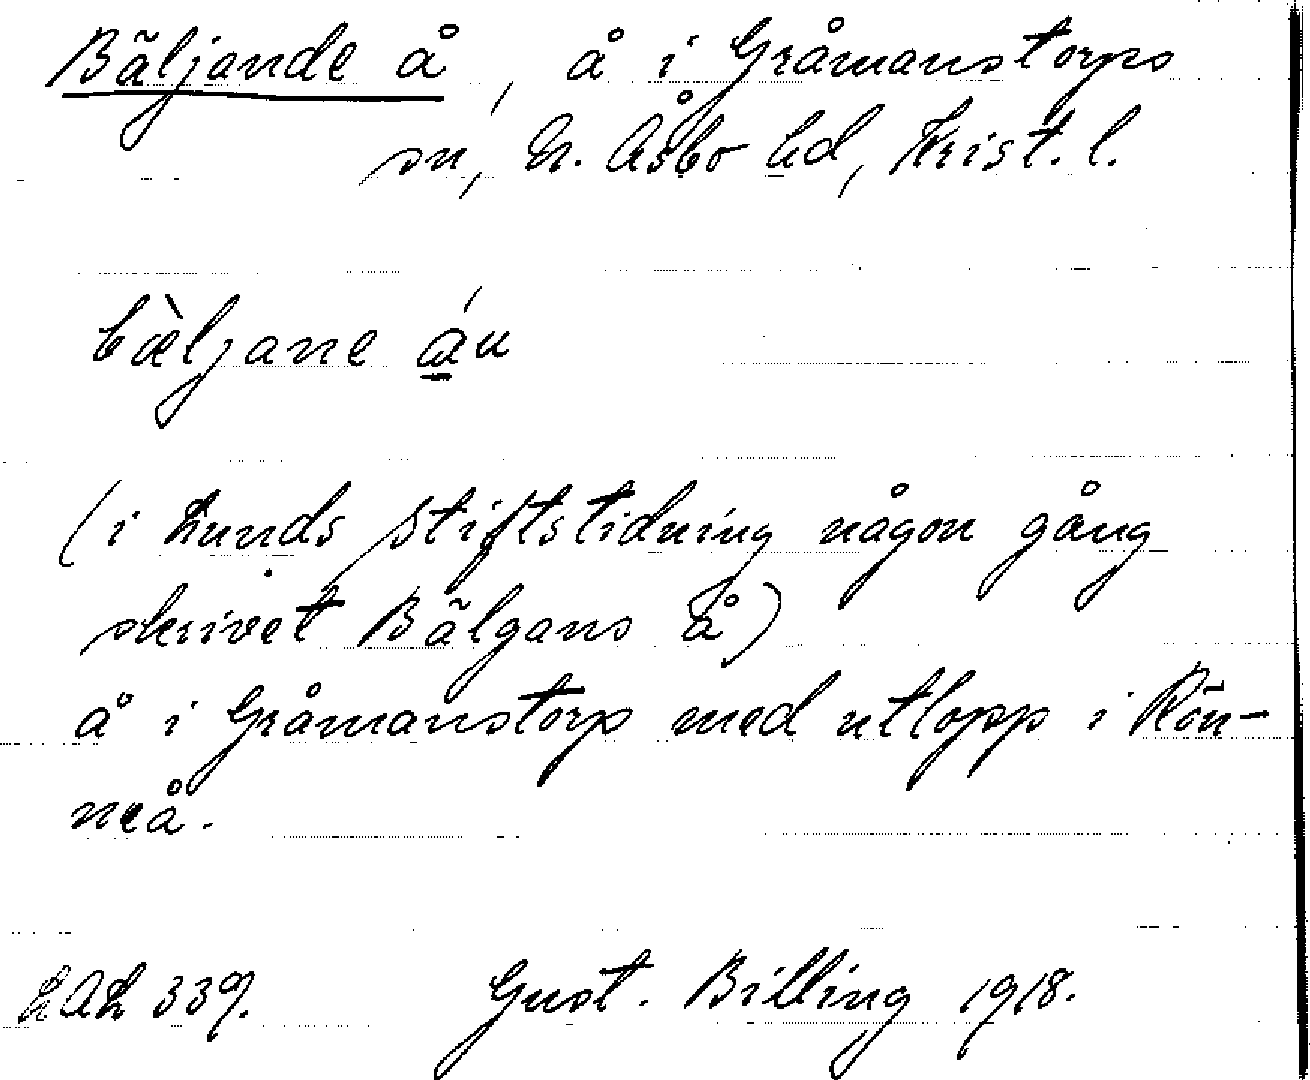 Bäljande å, å i Gråmanstorps
sn, N. Åsbo hd, Krist. l.
bæ̀ljane á̲u
(i Lunds stiftstidning någon gång
skrivet Bälgans å)
å i Gråmanstorp med utlopp i Rön-
neå.
LAL 339. Gust. Billing 1918.